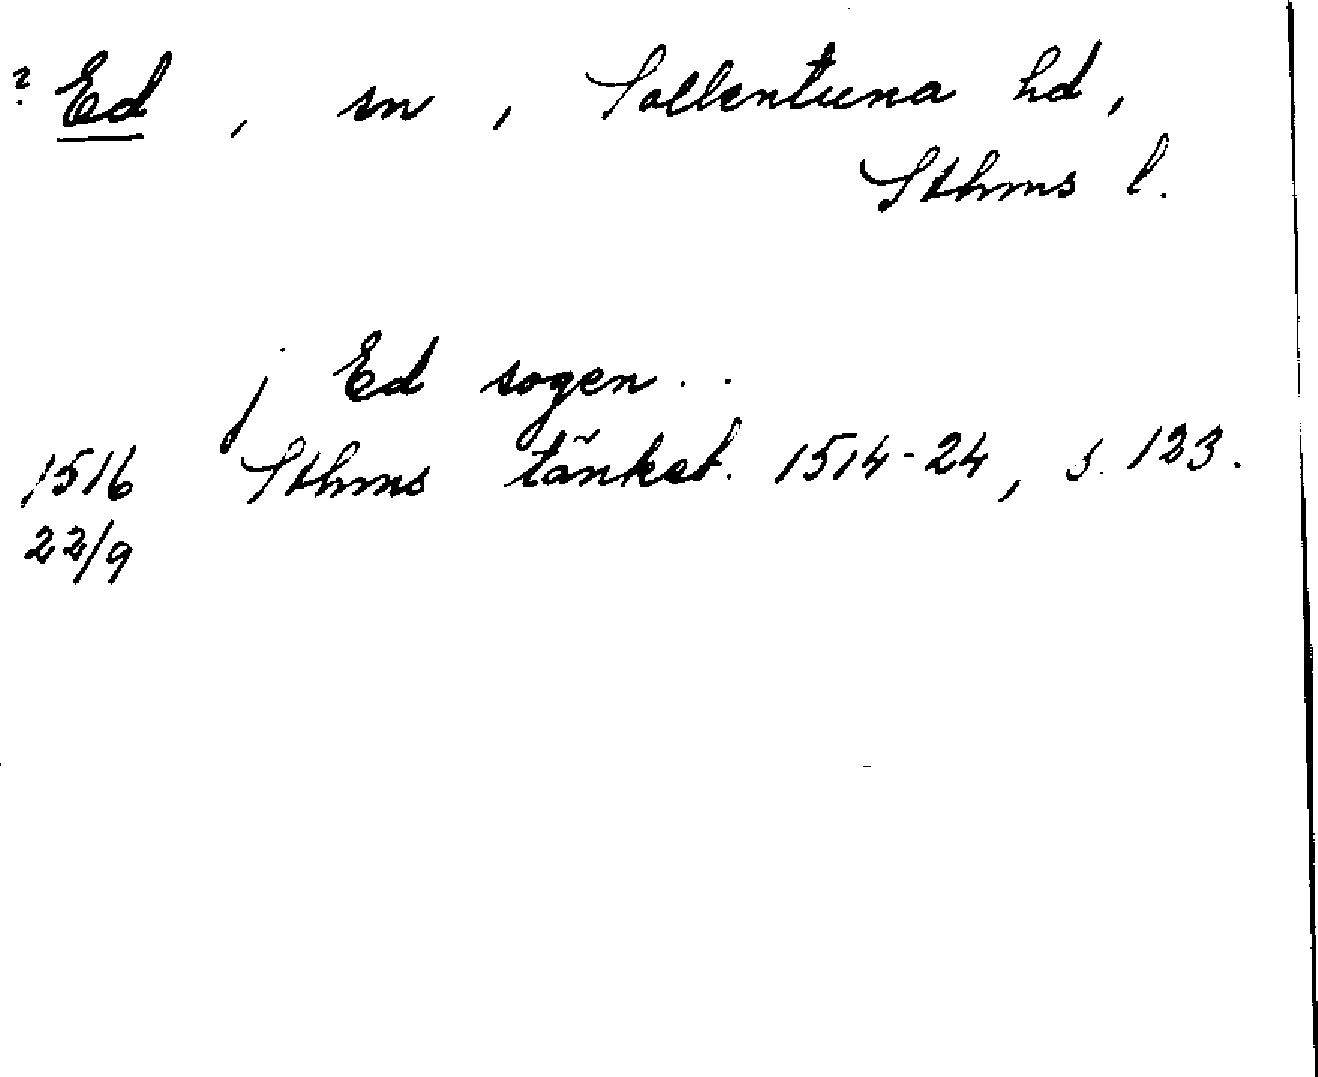 ? Ed, sn, Sollentuna hd,
Sthms l.
j Ed sogen . .
1516 Sthms tänkeb. 1514-24, s. 123.
22/9